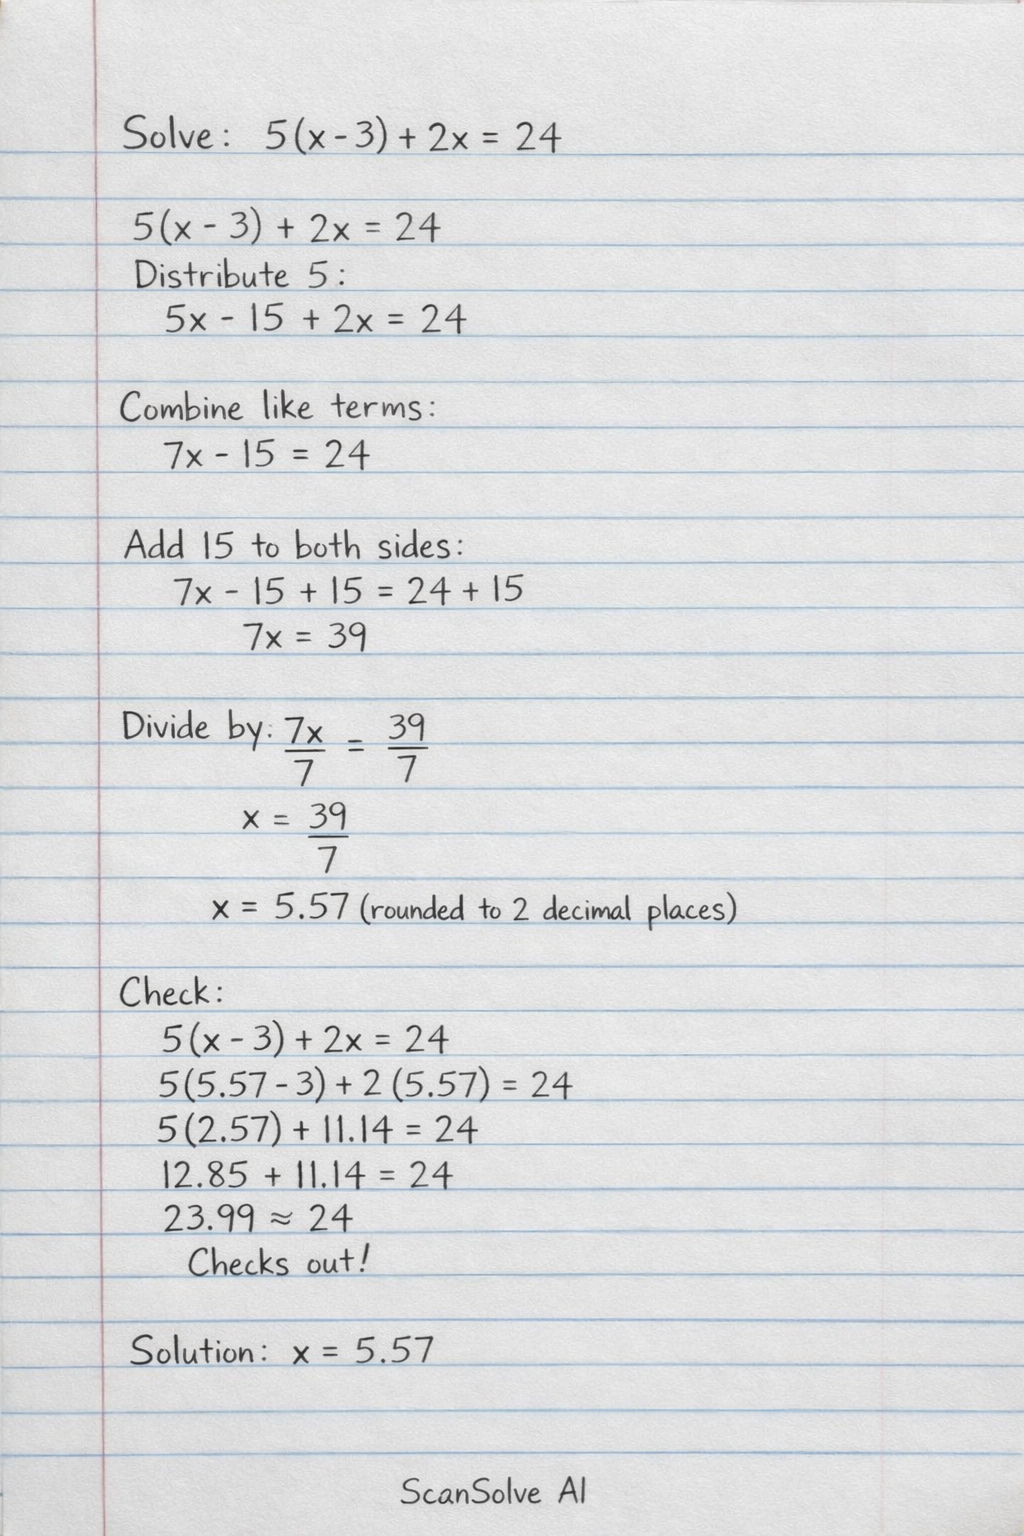 Solve: 5(x - 3) + 2x = 24
5(x - 3) + 2x = 24
Distribute 5:
5x - 15 + 2x = 24
Combine like terms:
7x - 15 = 24
Add 15 to both sides:
7x - 15 + 15 = 24 + 15
7x = 39
Divide by: 7x/7 = 39/7
x = 39/7
x = 5.57 (rounded to 2 decimal places)
Check:
5(x - 3) + 2x = 24
5(5.57 - 3) + 2 (5.57) = 24
5(2.57) + 11.14 = 24
12.85 + 11.14 = 24
23.99 ≈ 24
Checks out!
Solution: x = 5.57
ScanSolve AI